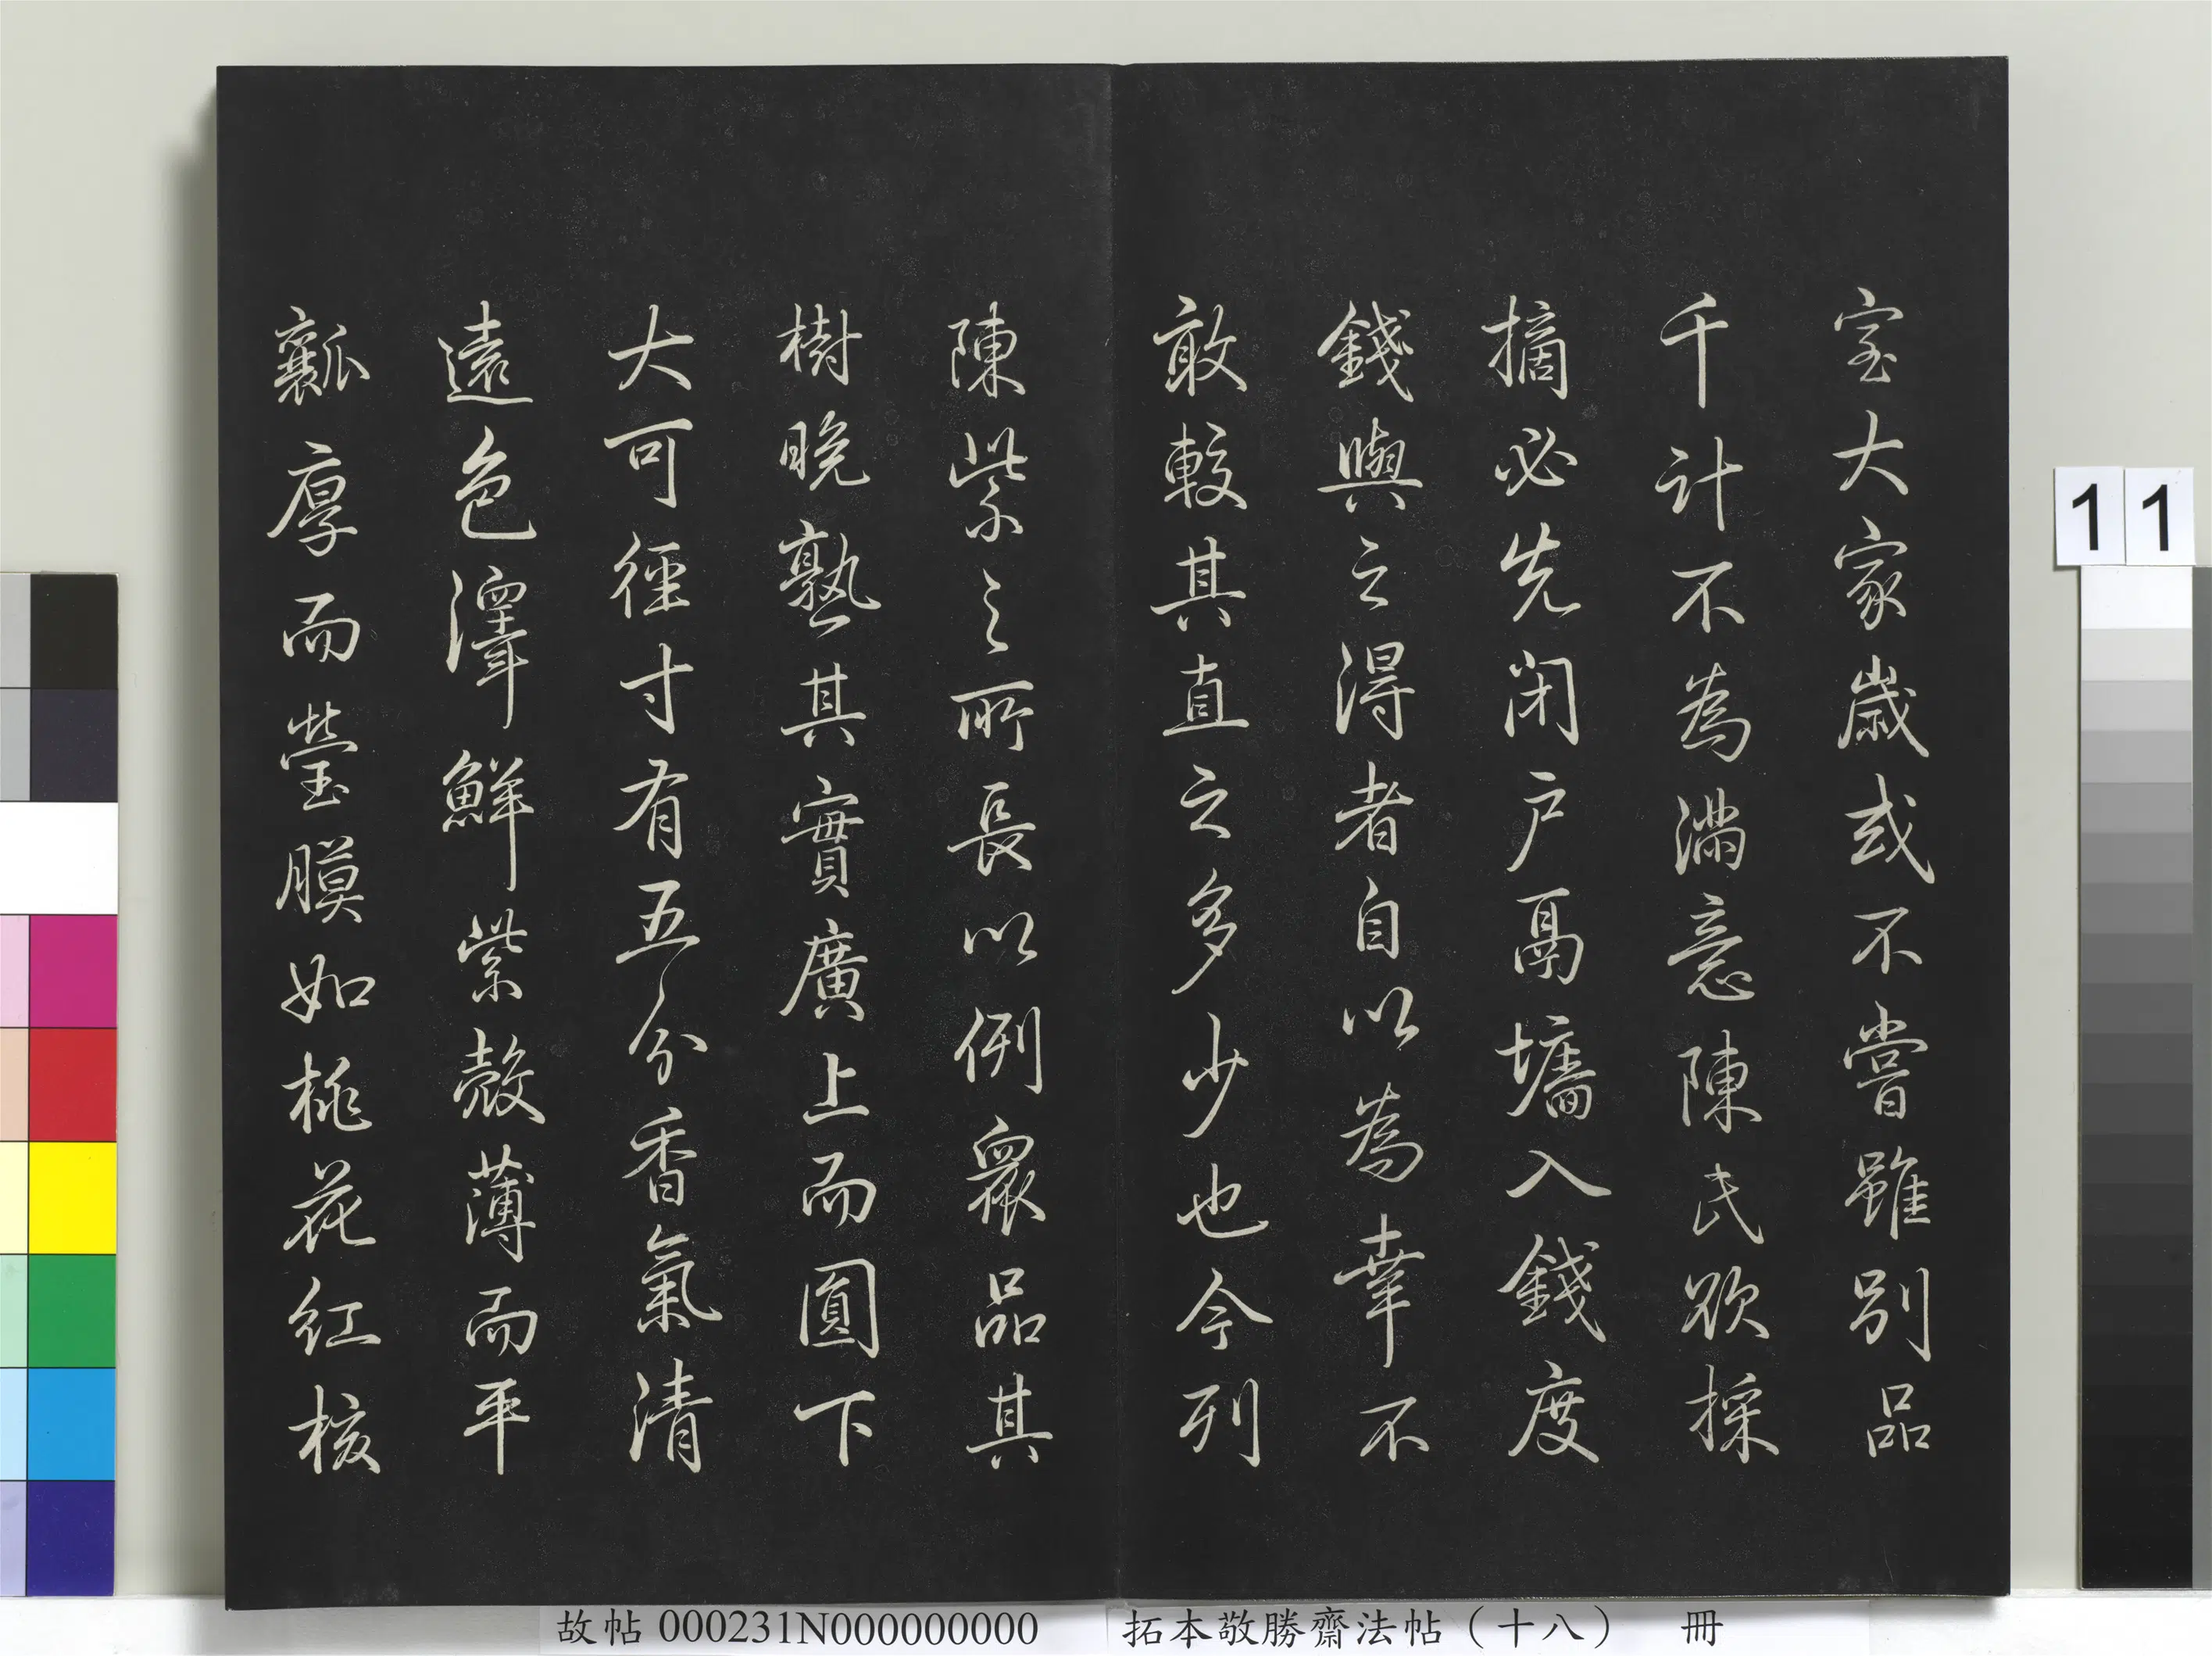 室大家歲或不嘗雖別品
千計不為滿意陳氏欲採
摘必先閉戶鬲墻入錢度
錢與之得者自以為幸不
敢較其直之多少也今列
陳紫之所長以例衆品其
樹晚熟其實廣上而圓下
大可徑寸有五分香氣清
遠色澤鮮紫殼薄而平
瓤厚而瑩膜如桃花紅核
11
故帖 000231N000000000
拓本敬勝齋法帖（十八） 冊